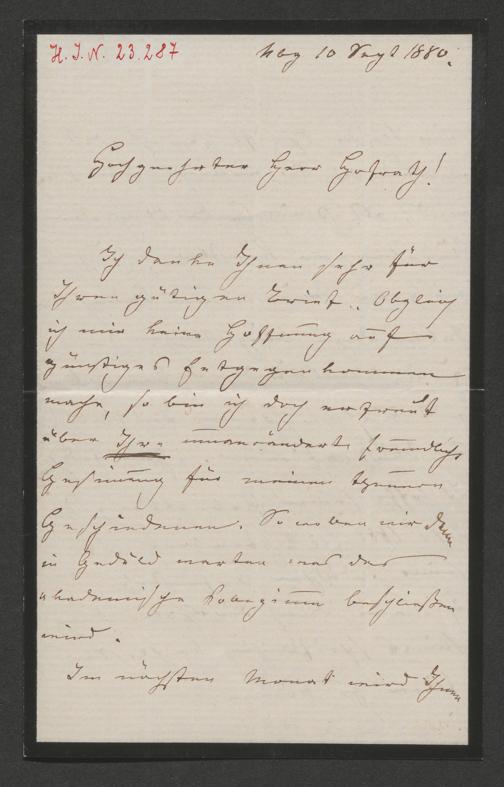 H. I. N. 23.287
Nbg 10 Sept 1880.
Hochgeehrter Herr Hofrath!
Ich danke Ihnen sehr für
Ihren gütigen Brief. Obgleich
ich mir keine Hoffnung auf
günstiges Entgegenkommen
mache, so bin ich doch erfreut
über Ihre unveränderte freundliche
Gesinnung für meinen theuern
Geschiedenen. So wollen wir denn
in Geduld warten was das
akademische Collegium beschließen
wird.
Im nächsten Monat wird Ihnen